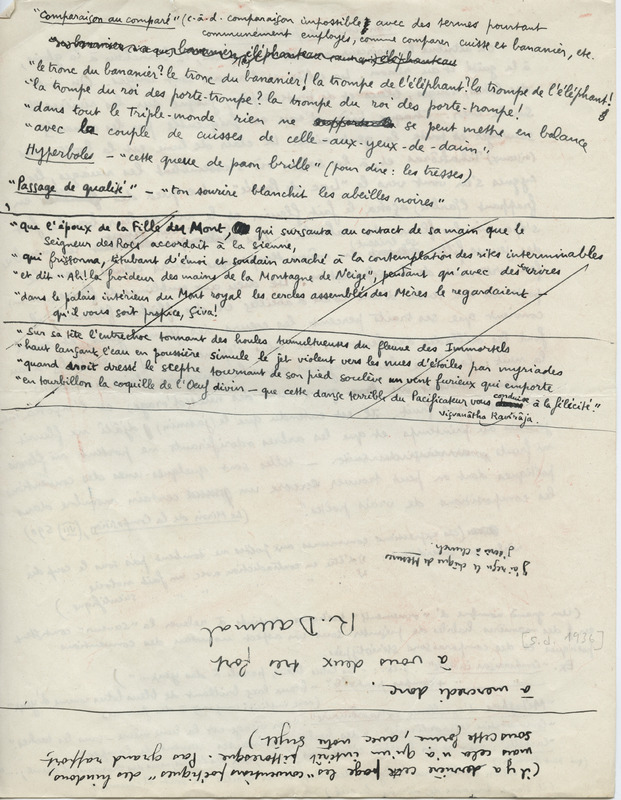 "Comparaison au comparé" (c-à-d. comparaison impossible avec des termes pourtant
communément employés, comme comparer cuisse et bananier, etc.
"le tronc du bananier? le tronc du bananier! la trompe de l'éléphant? la trompe de l'éléphant!
"la trompe du roi des porte-trompe? la trompe du roi des porte-trompe!
"dans tout le Triple-monde rien ne se peut mettre en balance
"avec le couple de cuisses de celle-aux-yeux-de-daim".
Hyperboles - "cette queue de paon brille" (pour dire: les tresses)
"Passage de qualité" - "ton sourire blanchit les abeilles noires"
"que l'époux de la Fille des Mont, qui sursauta au contact de sa main que le
Seigneur des Rocs accordait à la sienne,
"qui frissonna, titubant d'émoi et soudain arraché à la contemplation des rites interminables
"et dit "Ah! la froideur des mains de la Montagne de Neige", pendant qu'avec des rires
"dans le palais intérieur du Mont royal les cercles assemblés des Mères le regardaient -
qu'il vous soit propice, Çiva!
"Sur sa tête l'entrechoc tonnant des houles tumultueuses du fleuve des Immortels
"haut lançant l'eau en poussière simule le jet violent vers les nues d'étoiles par myriades
"quand droit dressé le sceptre tournant de son pied soulève un vent furieux qui emporte
"en tourbillon la coquille de l'Oeuf divin - que cette danse terrible du Pacificateur vous conduise à la félicité."
Viçvanâtha Kavirâja.
(il y a derrière cette page les "conventions poétiques" des hindous,
mais cela n'a qu'un intérêt pittoresque. Pas grand rapport,
sous cette forme, avec notre sujet)
à mercredi donc.
à vous deux très fort
R. Daumal
[S.d. 1936]
J'ai reçu le chèque de Mesures
J'écris à Church.